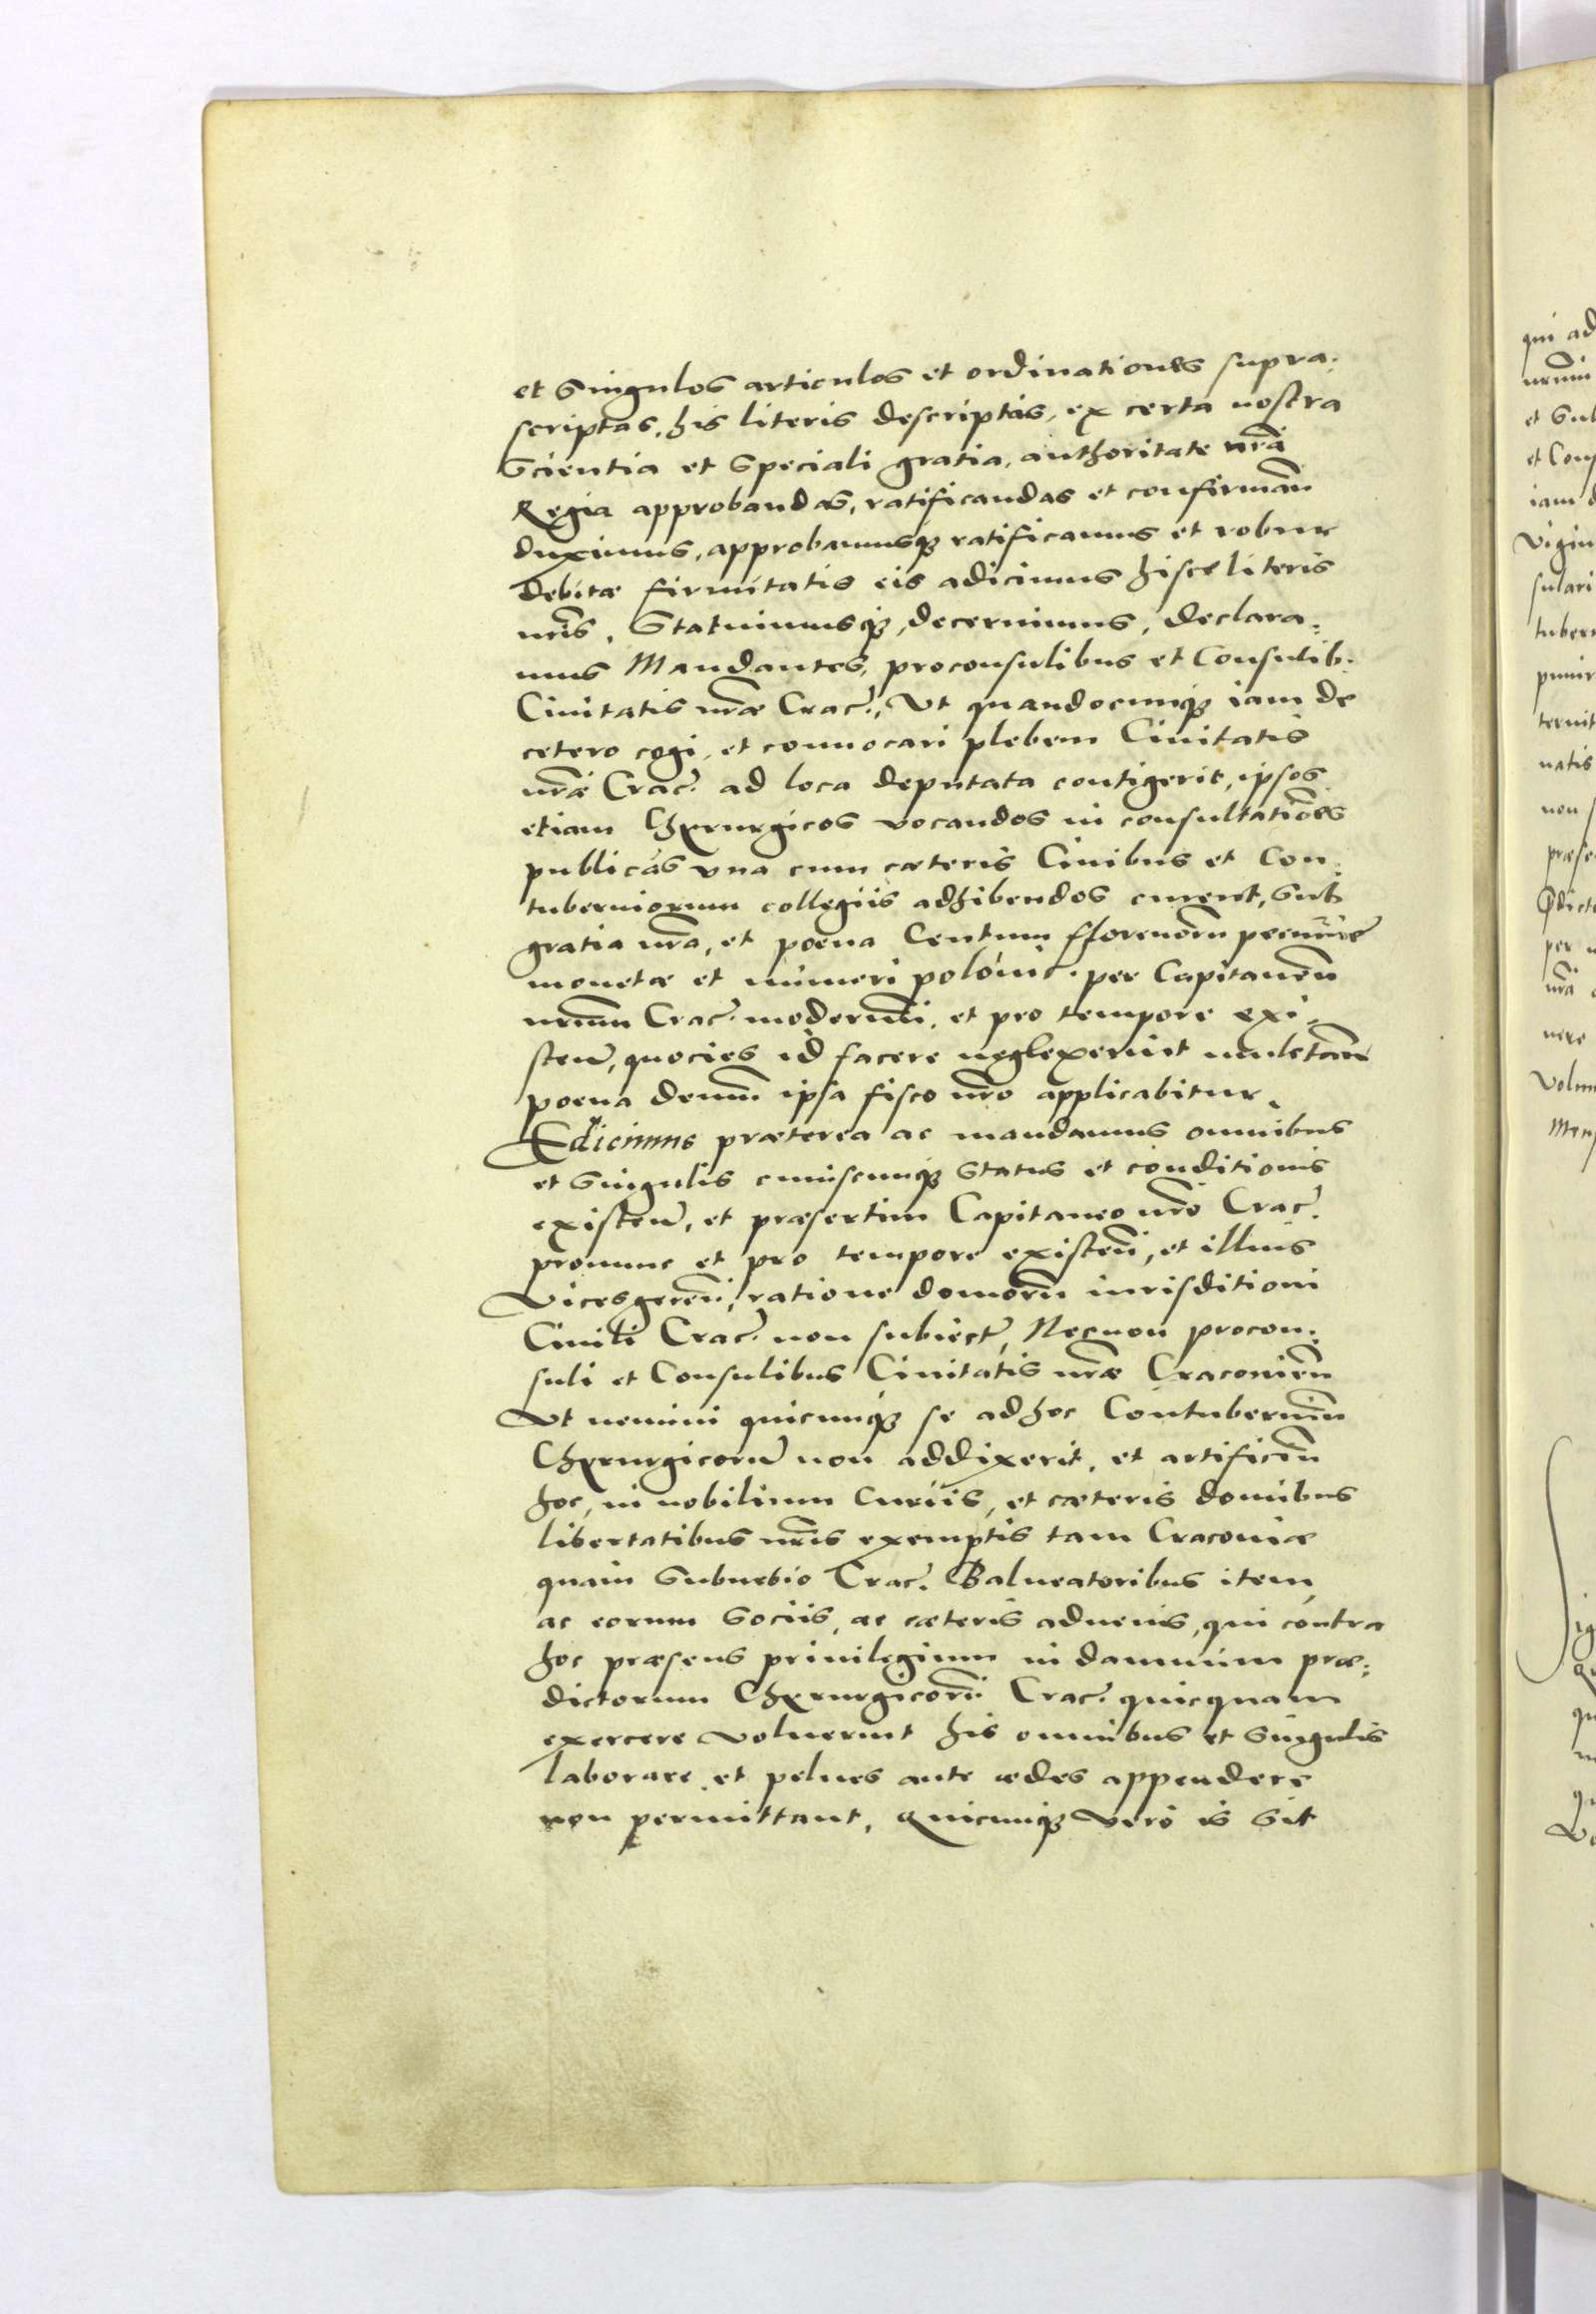 et Singulos articulos et ordinationes supra:
scriptas, his literis descriptas, ex certa nostra
Scientia et Speciali gratia, authoritate nrã
Regia approbandas, ratificandas et confirmañ
duximus, approbamusq3 ratificamus et robur
debitæ firmitatis eis adicimus hisce literis
nris, Statuimusq3, decernimus, declara:
mus Mandantes, proconsulibus et Consulib.
Ciuitatis nræ Crac., Vt quandocunq3 iam de
cetero cogi, et conuocari plebem Ciuitatis
nræ Crac. ad loca deputata contigerit, ipsos
etiam Chyrurgicos vocandos in consultatiões
publicas vna cum cæteris Ciuibus et Con:
tuberniorum collegiis adhibendos curent, Sub
gratia nra, et poena Centum fflorenorũ pecuniæ
monetæ et numeri polonic. per Capitaneũ
nrum Crac. modernũ, et pro tempore exi:
steñ, quocies id facere neglexerint mulctañ
poena demũ ipsa fisco nro applicabitur.
Edicimus præterea ac mandamus omnibus
et Singulis cuiuscunq3 Status et conditionis
existeñ, et præsertim Capitaneo nro Crac.
pronunc et pro tempore existeñ, et illius
Vicesgereñ, ratione domorũ iurisditioni
Ciuili Crac. non subiect, Necnon procon:
suli et Consulibus Ciuitatis nræ Cracouieñ
Vt nemini quicunq3 se ad hoc Contuberniũ
Chyrurgicorũ non addixerit, et artificiũ
hoc, in nobilium Curiis, et cæteris domibus
libertatibus nris exemptis tam Cracouiæ
quam Suburbio Crac. Balneatoribus item
ac eorum Sociis, ac cæteris aduenis, qui contra
hoc præsens priuilegium in damnum præ:
dictorum Chyrurgicorũ Crac. quicquam
exercere voluerint his omnibus et Singulis
laborare et pelues ante ædes appendere
non permittant, Quicunq3 vero is Sit